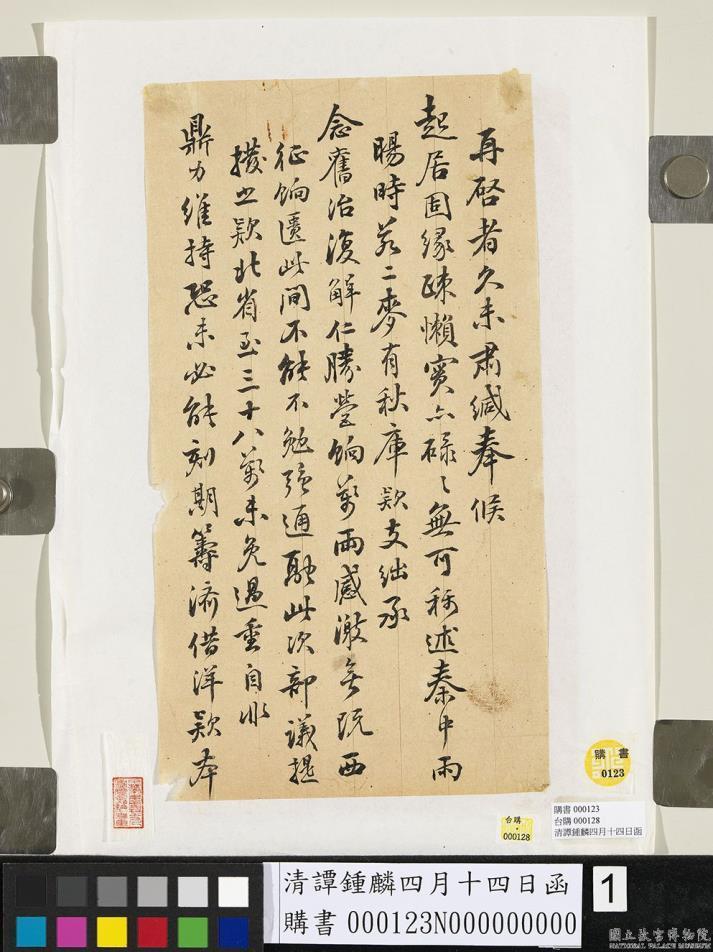 再啓者久未肅緘奉候
起居固緣疎懶實亦碌碌無可稱述秦中雨
暘時若二麥有秋庫款支絀承
念舊治復解仁勝營餉萬兩感激無既西
征餉匱此間不能不勉強通融此次部議提
撥之款北省至三十八萬未免過重自非
鼎力維持恐未必能刻期籌濟借洋款本
購書
0123
台購
000128
購書 000123
台購 000128
清譚鍾麟四月十四日函
清譚鍾麟四月十四日函
購書 000123N000000000
1
國立故宮博物院
NATIONAL PALACE MUSEUM